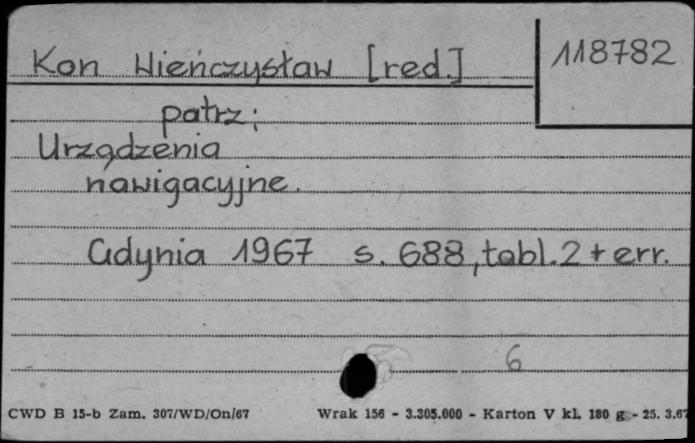 Kon Wieńczysław [red.]
118782
patrz:
Urządzenia
nawigacyjne.
Gdynia 1967 s. 688, tabl. 2 + err.
6
CWD B 15-b Zam. 307/WD/On/67 Wrak 156 - 3.305.000 - Karton V kl. 180 g - 25. 3.67